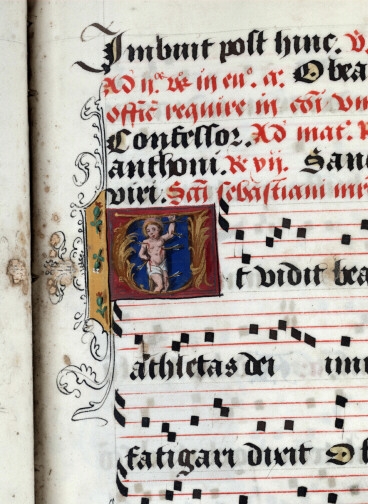 Imbuit post hinc. V.
Ad ii. vɤ in euᵒ. a. O bea
offic require in coi vn
Confessor. Ad mat. R
anthoni. R vij. Sanc
viri. Scti sebastiani mr
Ut vidit bea
athletas dei
fatigari dixit O